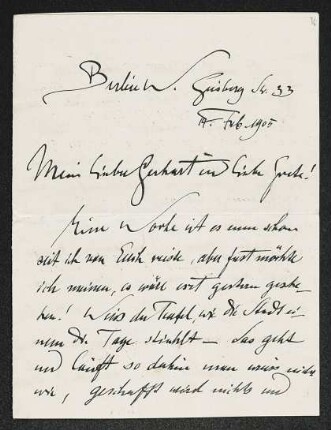 Berlin W. Ginsberg Str. 33
Feb 1905
Mein lieber Gerhart und liebe Grete!
Eine Woche ist es nun schon
seit ich von Euch reiste, aber fast möchte
ich meinen, es wäre erst gestern gesche-
hen! Weiss der Teufel, wie die Stadt ei-
nem die Tage stiehlt – das geht
und läuft so dahin man weiss nicht
wie, geschafft wird nichts und